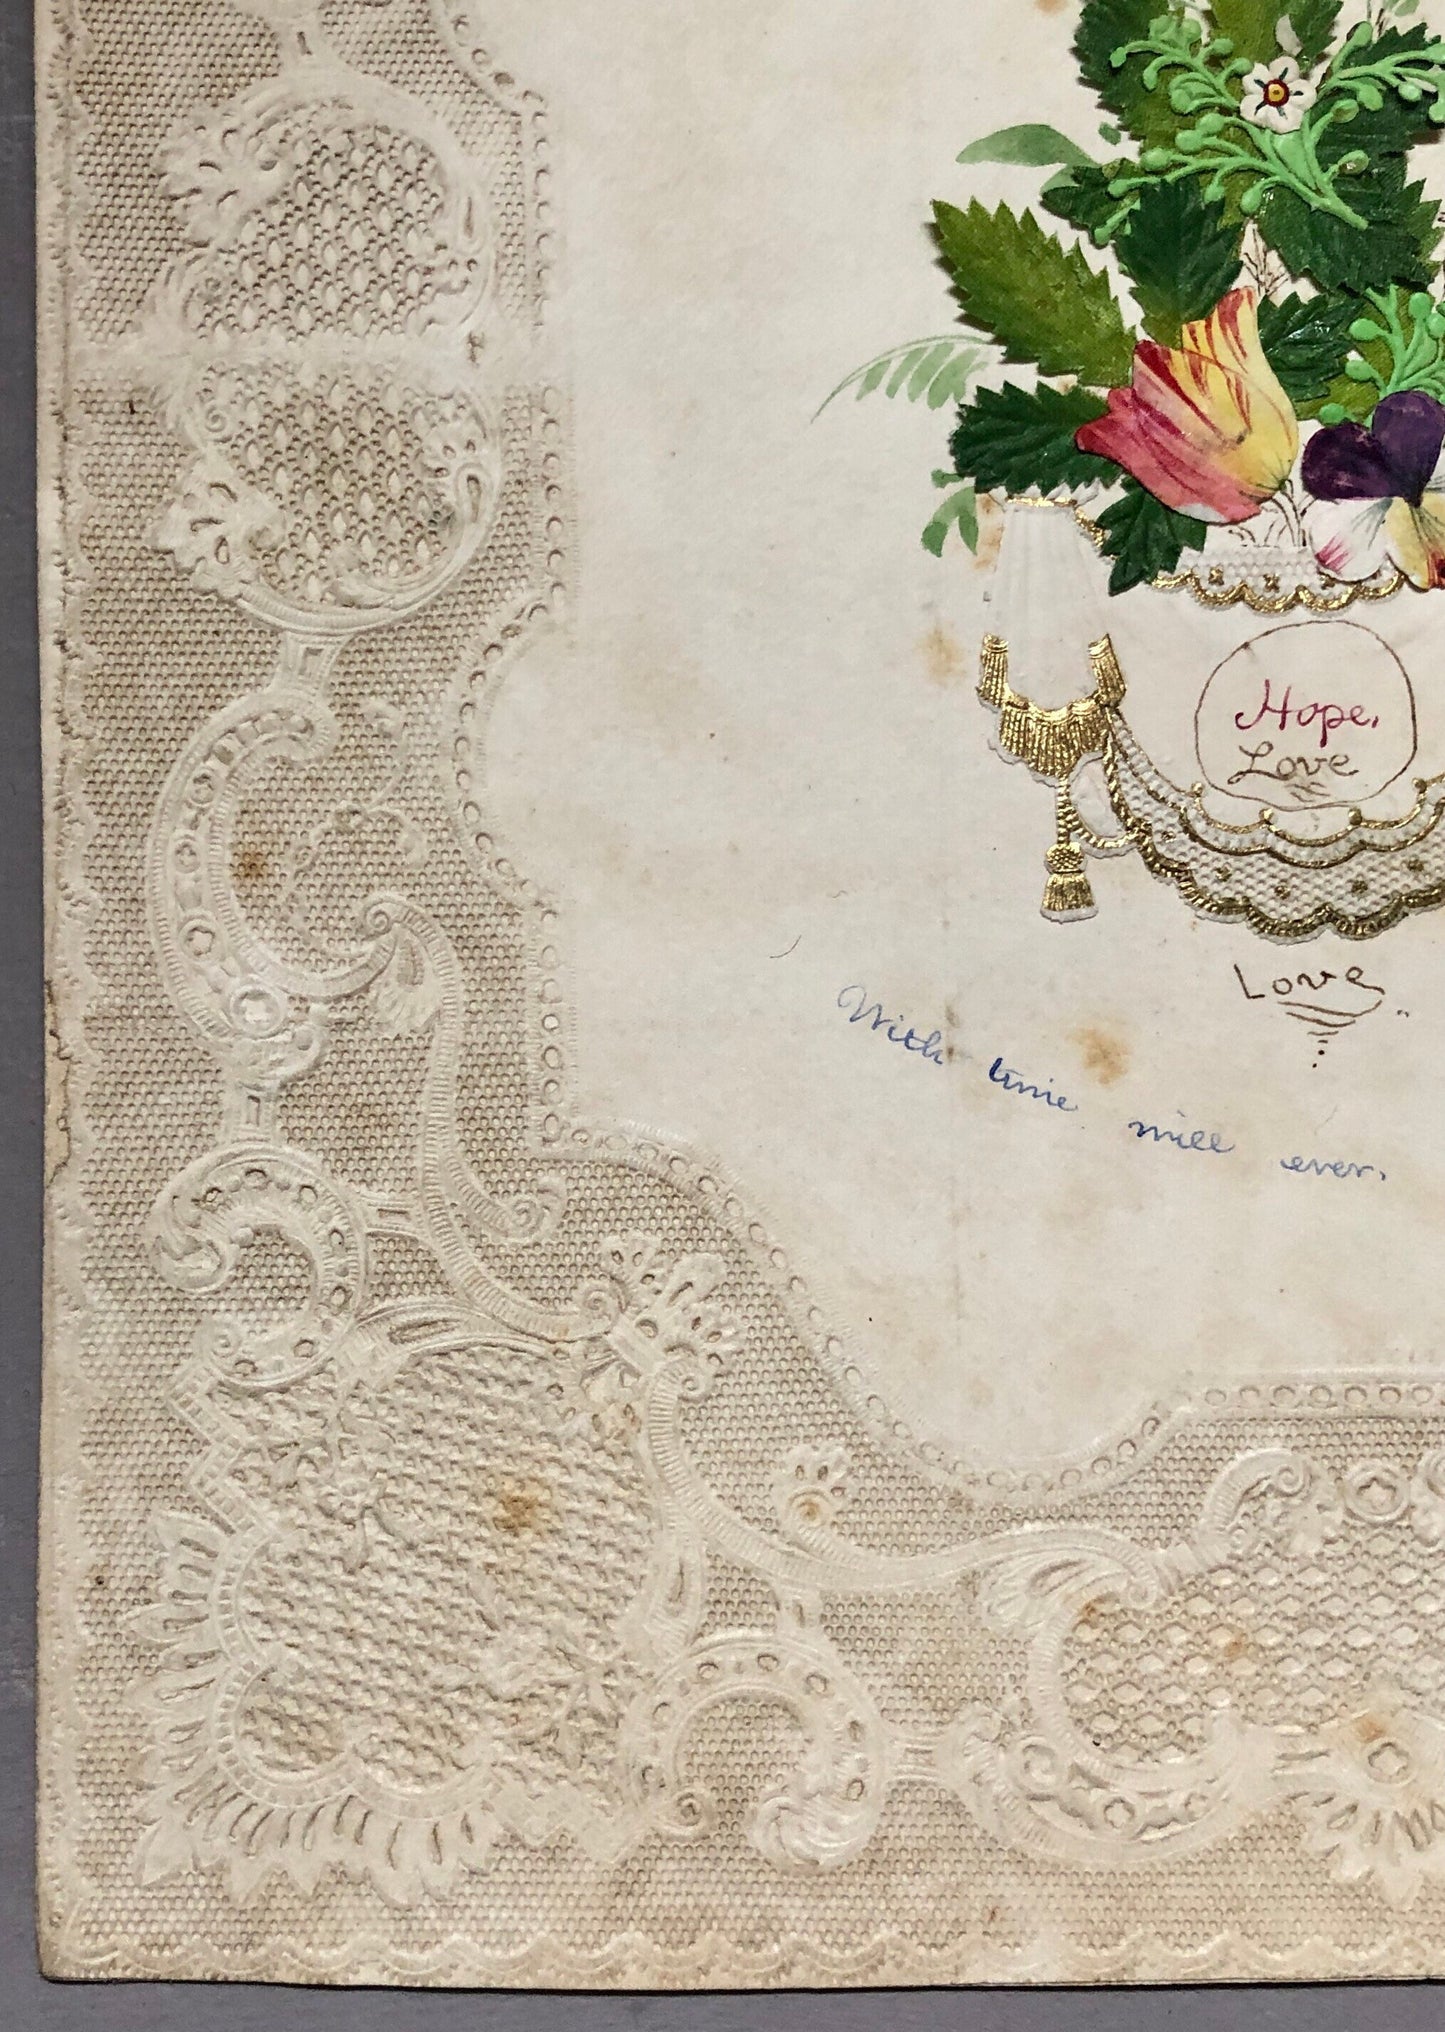 Hope,
Love
Love
With time will ever.